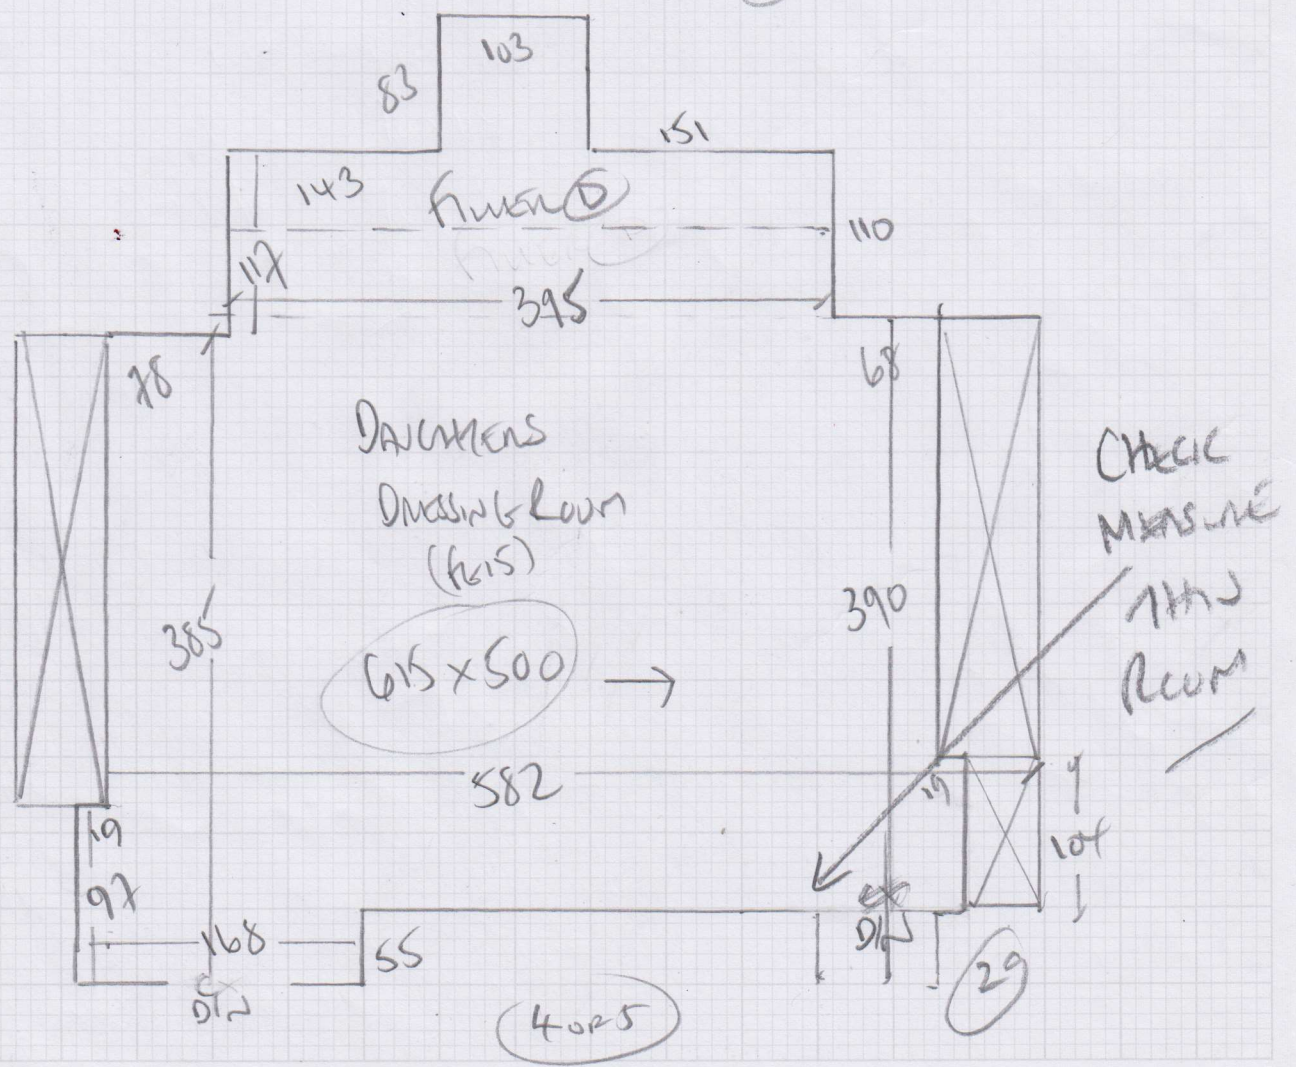 103
83
151
143
FILLER 5
110
117
395
78
68
DAUGHTERS
DRESSING ROOM
(FF15)
CHECK
MEASURE
THIS
ROOM
385
390
615 x 500
582
19
19
104
97
168
55
DIN
DIN
29
4 OF 5